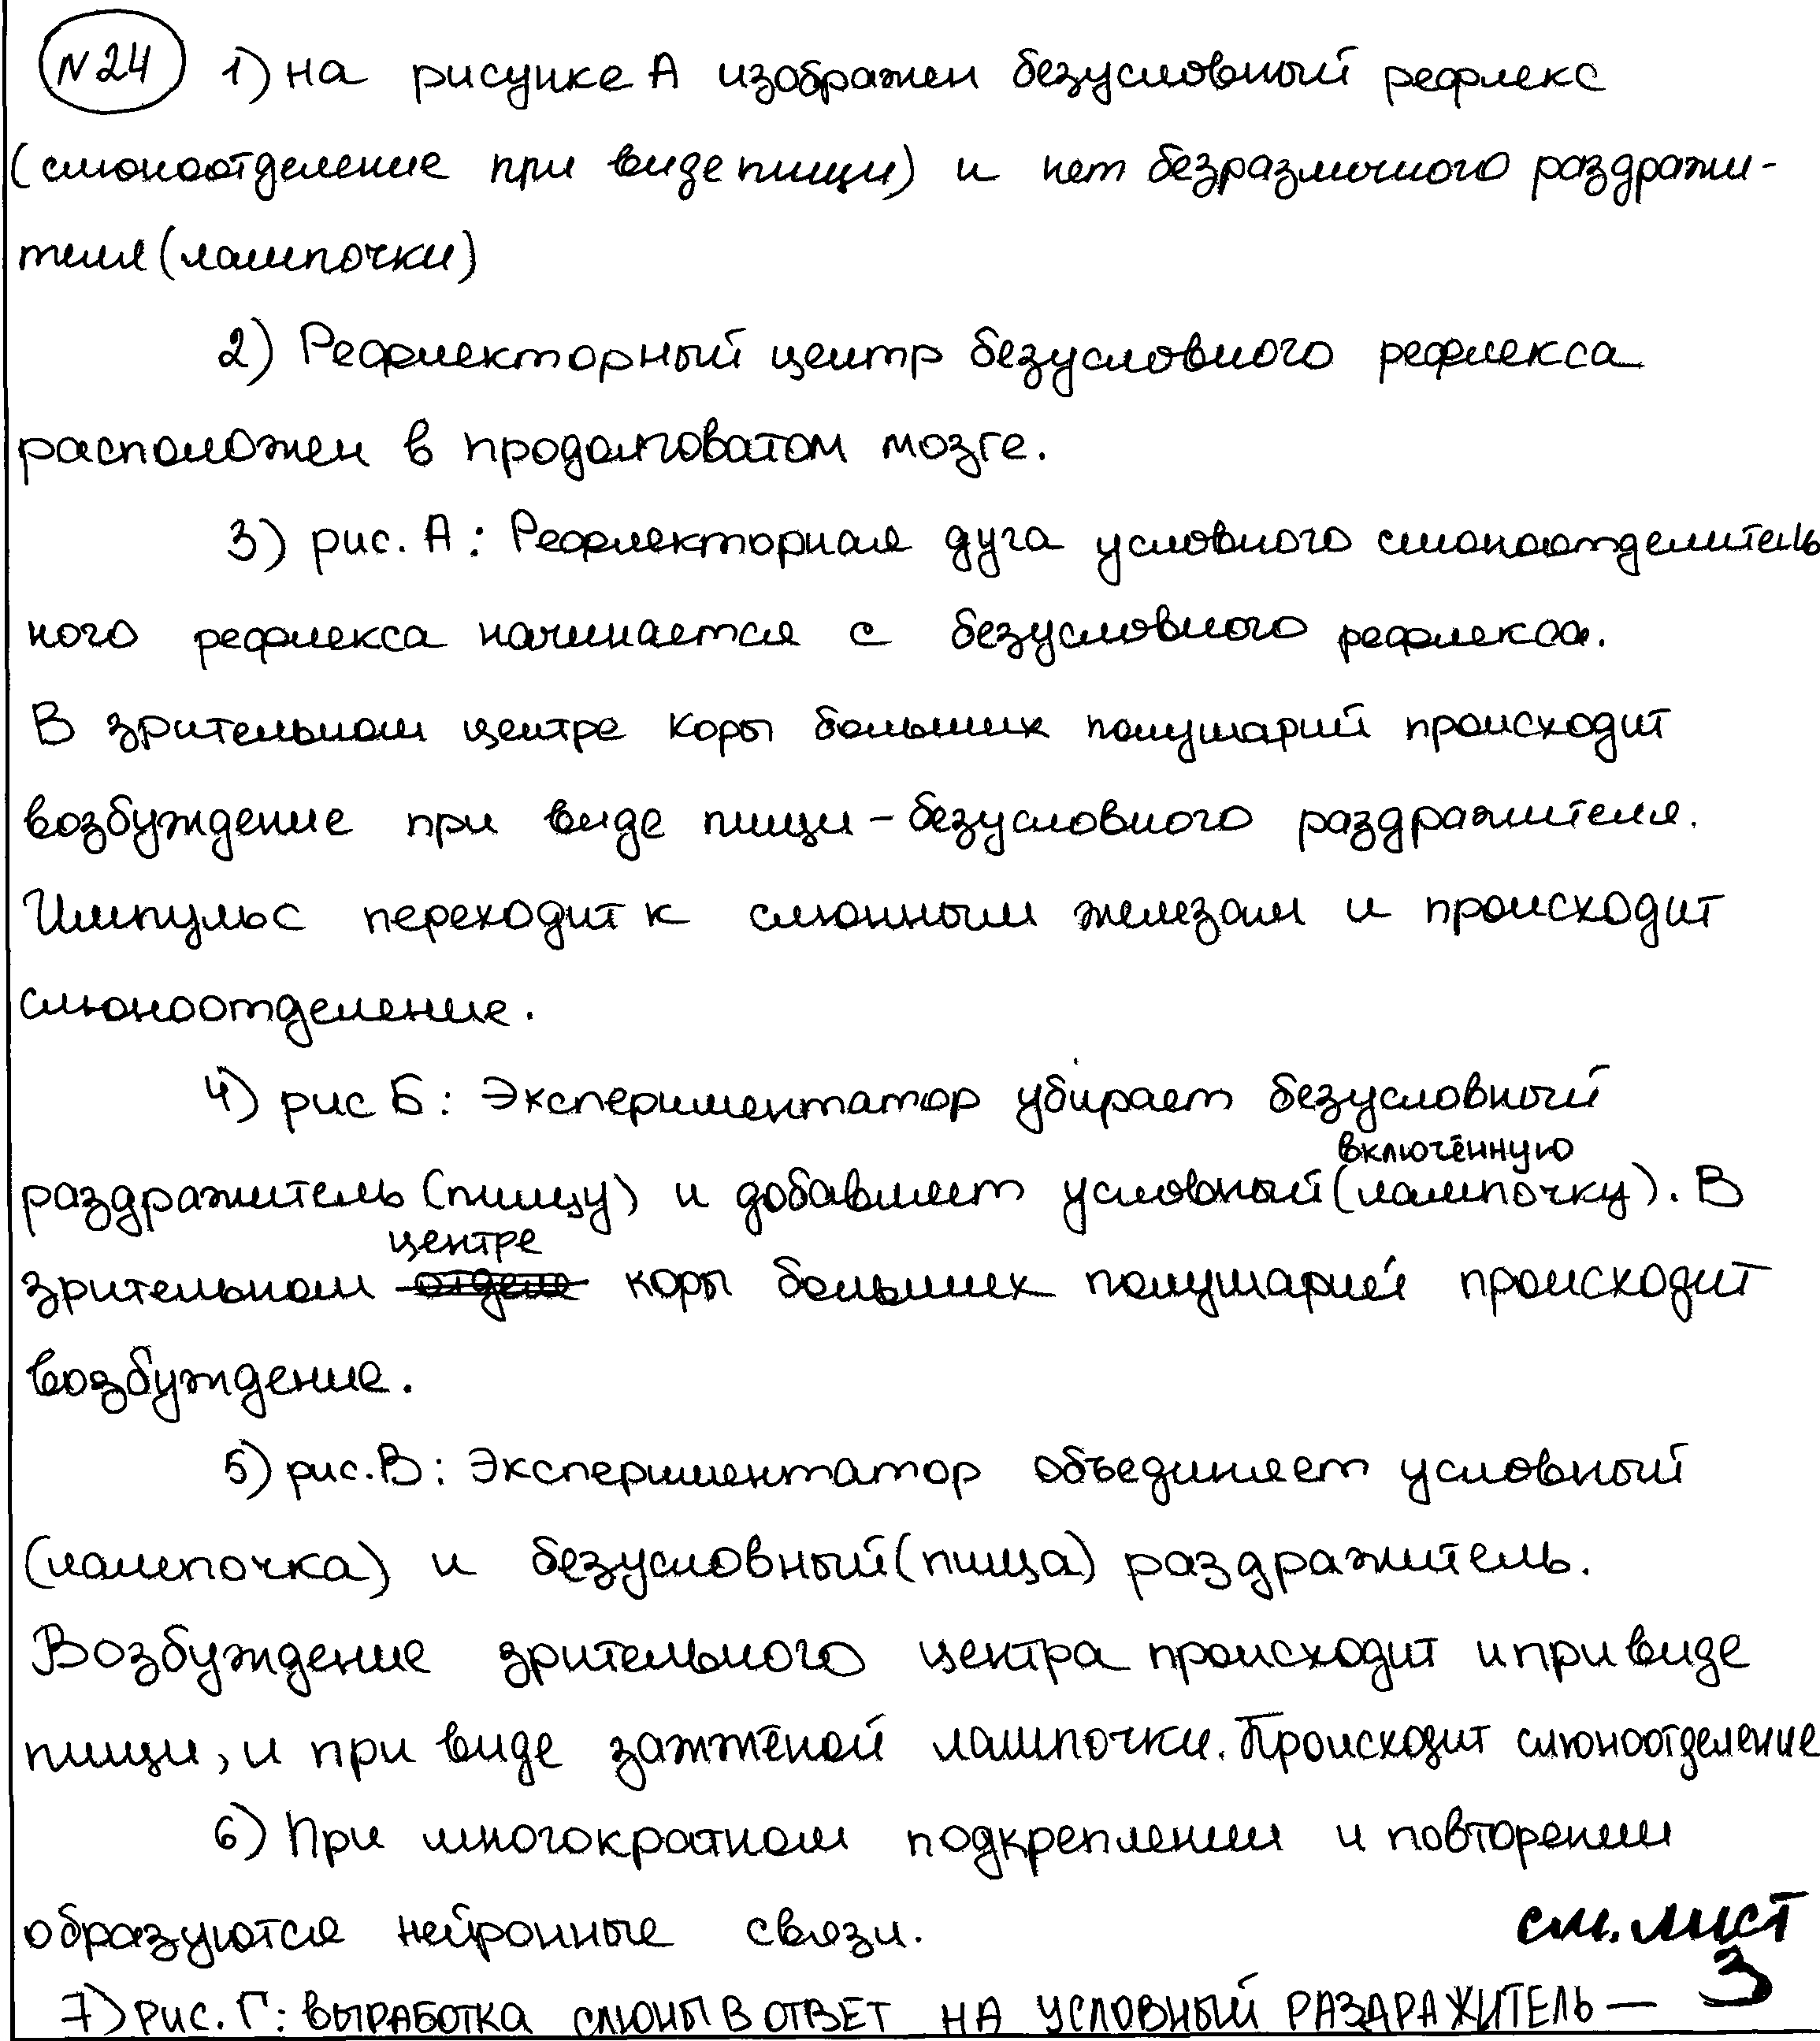 №24 1) на рисунке А изображен безусловный рефлекс
(слюноотделение при виде пищи) и нет безразличного раздражи-
теля (лампочки)
2) Рефлекторный центр безусловного рефлекса
расположен в продолговатом мозге.
3) рис. А: Рефлекторная дуга условного слюноотделитель
ного рефлекса начинается с безусловного рефлекса.
В зрительном центре коры больших полушарий происходит
возбуждение при виде пищи - безусловного раздражителя.
Импульс переходит к слюнным железам и происходит
слюноотделение.
4) рис Б: Экспериментатор убирает безусловный
включённую
раздражитель (пищу) и добавляет условный (лампочку). В
центре
зрительном отделе коры больших полушарий происходит
возбуждение.
5) рис. В: Экспериментатор объединяет условный
(лампочка) и безусловный (пища) раздражитель.
Возбуждение зрительного центра происходит и при виде
пищи, и при виде зажжёной лампочки. Происходит слюноотделение
6) При многократном подкреплении и повторении
образуются нейронные связи. см. лист
3
7) рис. Г: ВЫРАБОТКА СЛЮНЫ В ОТВЕТ НА УСЛОВНЫЙ РАЗДРАЖИТЕЛЬ —